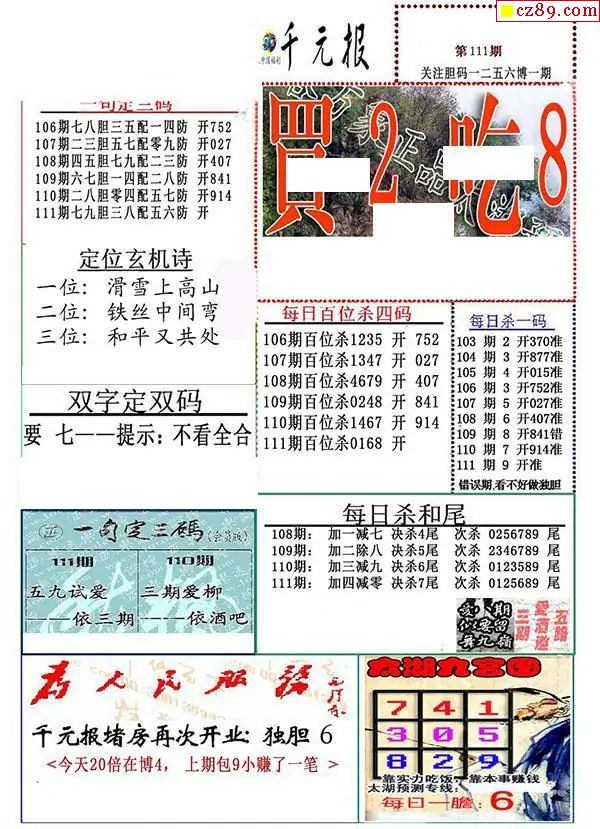 cz89.com
千元报
中国福利
第111期
关注胆码一二五六博一期
一句定三码
106期七八胆三五配一四防 开752
107期二三胆五七配零九防 开027
108期四五胆七九配二三防 开407
109期六七胆一四配二八防 开841
110期二八胆零四配五七防 开914
111期七九胆三八配五六防 开
買2吃8
定位玄机诗
一位: 滑雪上高山
二位: 铁丝中间弯
三位: 和平又共处
每日百位杀四码
106期百位杀1235 开 752
107期百位杀1347 开 027
108期百位杀4679 开 407
109期百位杀0248 开 841
110期百位杀1467 开 914
111期百位杀0168 开
每日杀一码
103 期 2 开370准
104 期 3 开877准
105 期 4 开015准
106 期 3 开752准
107 期 5 开027准
108 期 6 开407准
109 期 8 开841错
110 期 7 开914准
111 期 9 开准
错误期,看不好做独胆
双字定双码
要 七——提示: 不看全合
一句定三碼(会员版)
111期
五九试爱
——依三期
110期
三期爱柳
——依酒吧
每日杀和尾
108期: 加一减七 决杀4尾 次杀 0256789 尾
109期: 加二除八 决杀5尾 次杀 2346789 尾
110期: 加三减九 决杀6尾 次杀 0123589 尾
111期: 加四减零 决杀7尾 次杀 0125689 尾
五路
愛酒巡
三期
为人民服务
千元报堵房再次开业: 独胆 6
<今天20倍在博4, 上期包9小赚了一笔 >
太湖九宫图
7 4 1
3 0 5
8 2 9
靠实力吃饭, 靠本事赚钱
太湖预测专线:
每日一膽: 6